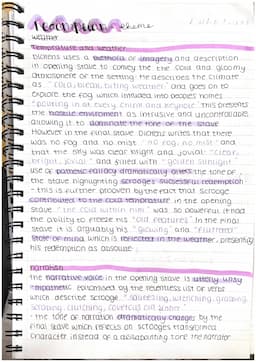 theme
weather
Temperature and weather
Dickens uses a plethora of imagery and description
in opening stave to convey the the cold and gloomy
atmosphere of the setting. He describes the climate
as "cold, bleak, biting weather" and goes on to
explore the fog which intruded into peoples homes
"pouring in at every chink and keyhole". This presents
the hostile environment as intrusive and uncomfortable
allowing it to dominate the tone of the stave.
However in the final stave Dickens writes that there
was no fog and no mist "no fog, no mist" and
that the city was clear bright and jovial: "clear,
bright, jovial" and filled with "golden sunlight"
use of pathetic fallacy dramatically alters the tone of
the stave highlighting scrooge's successful redemption
- this is further proven by the fact that Scrooge
contributed to the cold temperature in the opening
stave "the cold within him" was so powerful it had
the ability to freeze his "old features". In the final
stave it is arguably his "glowing" and "fluttered"
state of mind which is reflected in the weather, presenting
his redemption as absolute.
narration
the narrative voice in the opening stave is utterly
epitomised by the relentless list of verbs
which describe scrooge. "squeezing, wrenching, grasping,
scraping, clutching, covetous old sinner"
• the tone of narration dramatically changes by the
final stave which reflects on scrooges transformed
character. instead of a disappointing tone the narrator